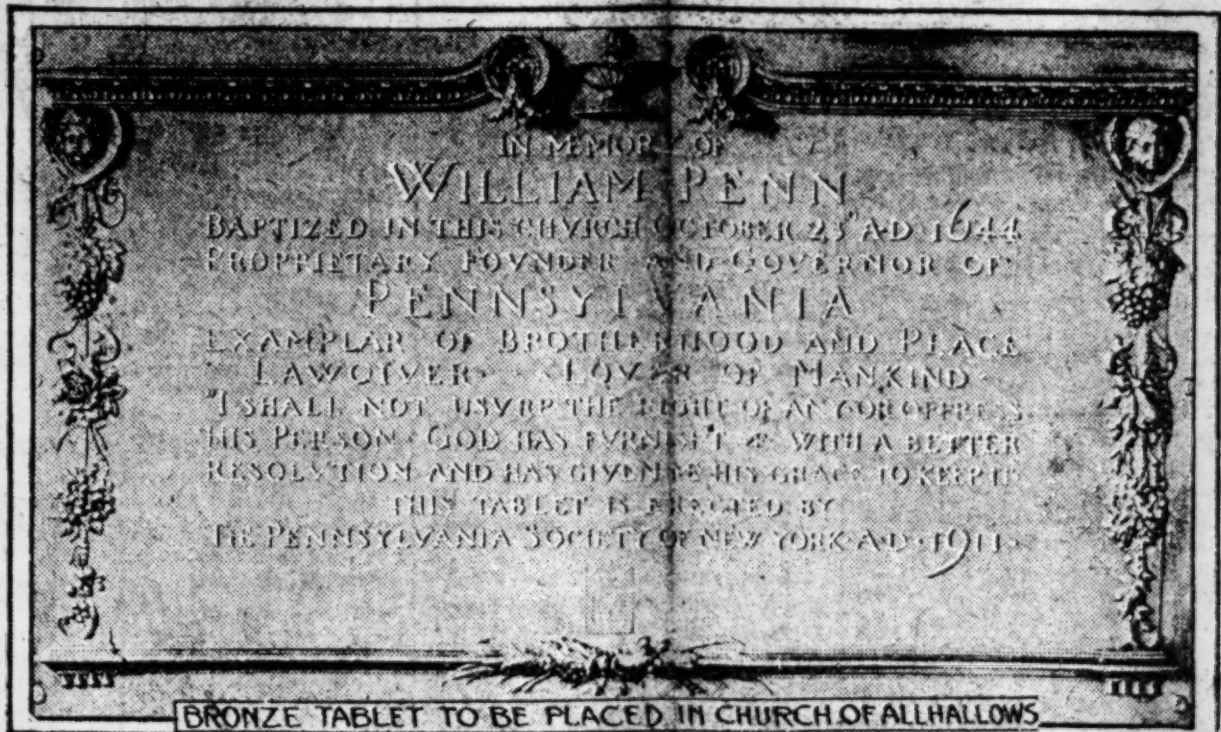 IN MEMORY OF
WILLIAM PENN
BAPTIZED IN THIS CHVRCH OCTOBER 23 AD 1644
PROPRIETARY FOVNDER AND GOVERNOR OF
PENNSYLVANIA
EXAMPLAR OF BROTHERHOOD AND PEACE
LAWGIVER · LOVER OF MANKIND ·
"I SHALL NOT USVRP THE RIGHT OF ANY OR OPPRESS
HIS PERSON · GOD HAS FVRNISHT WITH A BETTER
RESOLVTION AND HAS GIVEN ME HIS GRACE TO KEEP IT"
THIS TABLET IS ERECTED BY
THE PENNSYLVANIA SOCIETY OF NEW YORK · A · D · 1911 ·
BRONZE TABLET TO BE PLACED IN CHURCH OF ALLHALLOWS